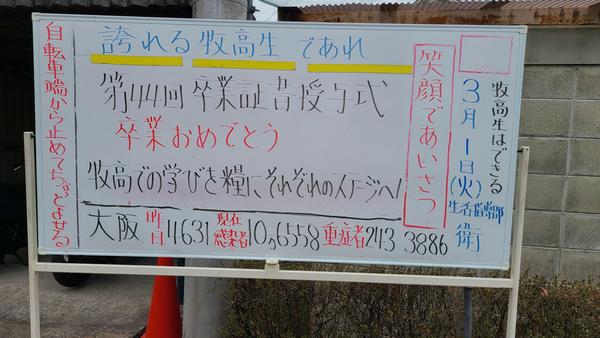 誇れる牧高生であれ
第44回 卒業証書授与式
卒業おめでとう
牧高での学びを糧にそれぞれのステージへ!
大阪 昨日4631 現在感染者10,6558 重症者243 3886
自転車端から止めてちょっとよせる
笑顔であいさつ
3月1日(火)
牧高生はできる
生活指導部
衛